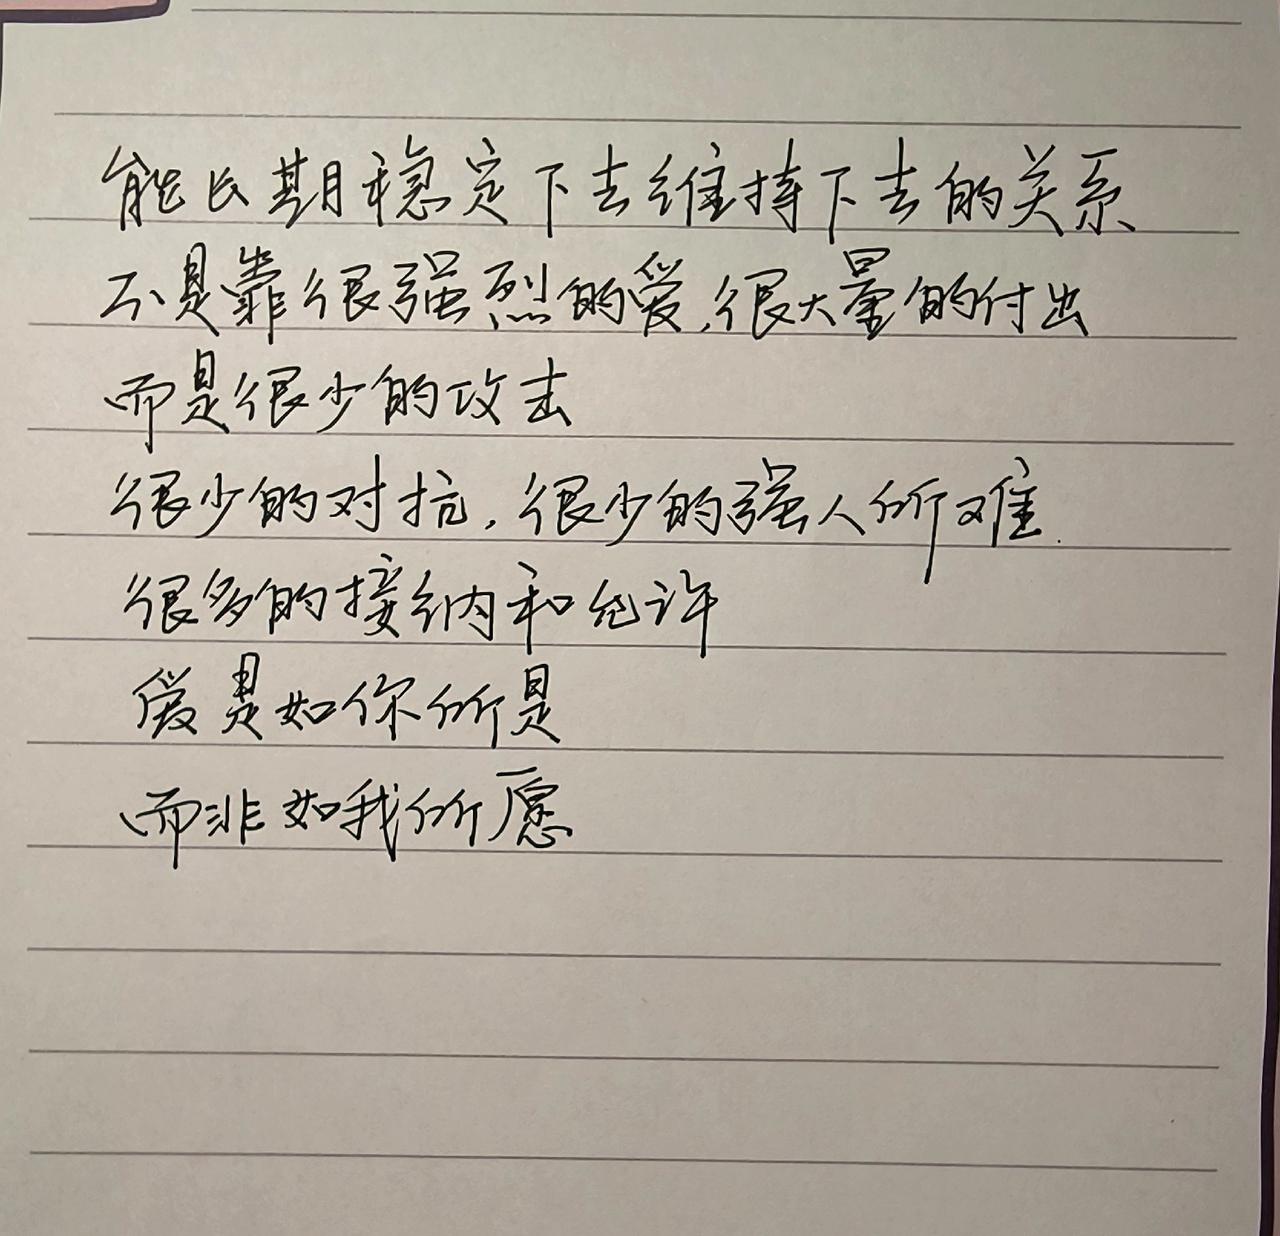 能长期稳定下去维持下去的关系
不是靠很强烈的爱,很大量的付出
而是很少的攻击
很少的对抗,很少的强人所难.
很多的接纳和允许
爱是如你所是
而非如我所愿